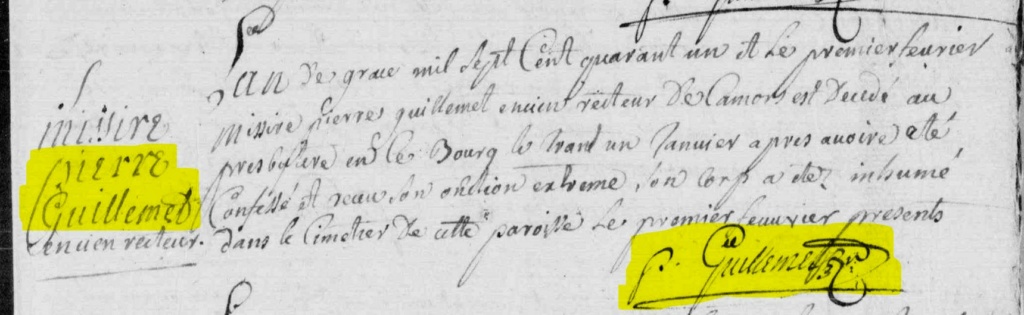 Missire
pierre
Guillemet
encien recteur.
L'an De grace mil sept Cent quarant un et Le premier feuvrier
Missire pierres quillemet encien recteur De Camors est Decedé au
presbitere en le Bourg le trant un Janvier apres avoire eté
Confessé et receu son onction extreme son corp a eté inhumé
dans le Cimetier De cette paroisse Le premier feuvrier presents
p. Guillemet